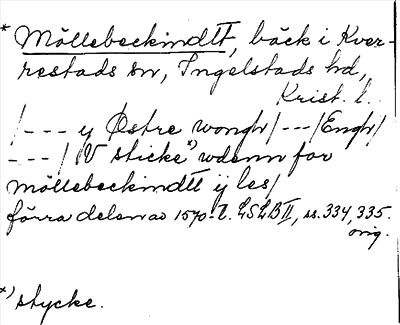 * Möllebeckindtt, bäck i Kver-
restads sn, Ingelstads hd,
Krist. l.
/--- y Østre wongh/---/Engh/
---/ IV sticke*) wdenn for
möllebeckindtt ij les/
förra delen av 1570-t. LSLB II, ss. 334, 335.
orig.
*) stycke.